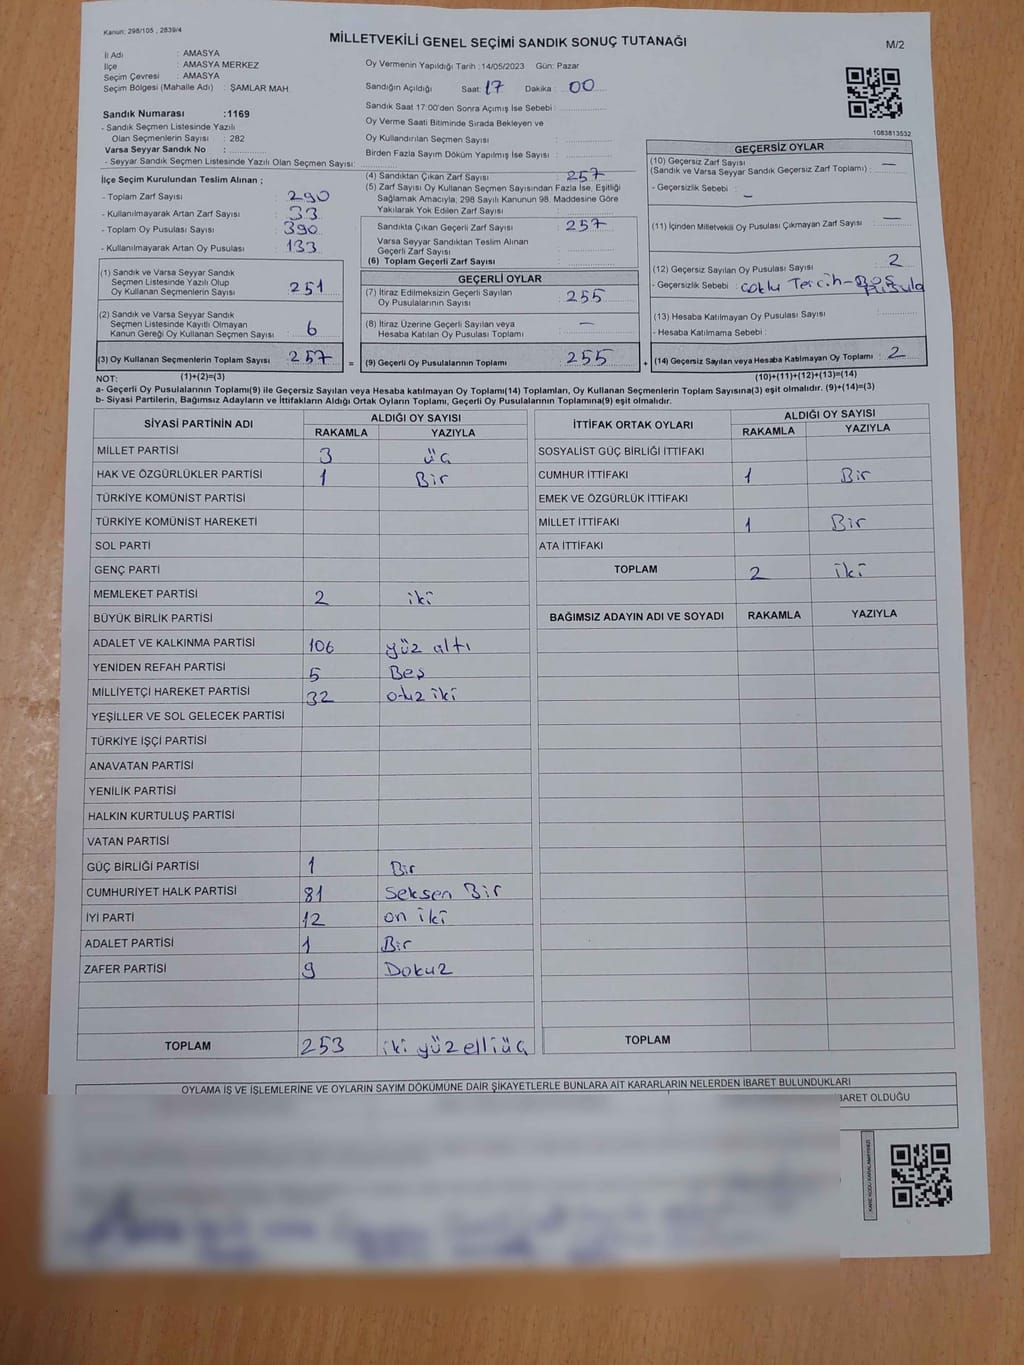 Kanun; 298/105 , 2839/4
MİLLETVEKİLİ GENEL SEÇİMİ SANDIK SONUÇ TUTANAĞI
M/2
İl Adı : AMASYA
İlçe : AMASYA MERKEZ
Seçim Çevresi : AMASYA
Seçim Bölgesi (Mahalle Adı) : ŞAMLAR MAH.
Oy Vermenin Yapıldığı Tarih :14/05/2023 Gün: Pazar
Sandığın Açıldığı Saat : 17 Dakika : 00
Sandık Saat 17:00'den Sonra Açımış İse Sebebi :
Oy Verme Saati Bitiminde Sırada Bekleyen ve
Oy Kullandırılan Seçmen Sayısı :
Birden Fazla Sayım Döküm Yapılmış İse Sayısı :
1083813532
Sandık Numarası :1169
- Sandık Seçmen Listesinde Yazılı
Olan Seçmenlerin Sayısı : 282
Varsa Seyyar Sandık No :
- Seyyar Sandık Seçmen Listesinde Yazılı Olan Seçmen Sayısı:
İlçe Seçim Kurulundan Teslim Alınan ;
- Toplam Zarf Sayısı : 290
- Kullanılmayarak Artan Zarf Sayısı : 33
- Toplam Oy Pusulası Sayısı : 390
- Kullanılmayarak Artan Oy Pusulası : 133
(1) Sandık ve Varsa Seyyar Sandık
Seçmen Listesinde Yazılı Olup
Oy Kullanan Seçmenlerin Sayısı : 251
(2) Sandık ve Varsa Seyyar Sandık
Seçmen Listesinde Kayıtlı Olmayan
Kanun Gereği Oy Kullanan Seçmen Sayısı : 6
(3) Oy Kullanan Seçmenlerin Toplam Sayısı : 257 =
(1)+(2)=(3)
(4) Sandıktan Çıkan Zarf Sayısı : 257
(5) Zarf Sayısı Oy Kullanan Seçmen Sayısından Fazla İse, Eşitliği
Sağlamak Amacıyla; 298 Sayılı Kanunun 98. Maddesine Göre
Yakılarak Yok Edilen Zarf Sayısı :
Sandıkta Çıkan Geçerli Zarf Sayısı : 257
Varsa Seyyar Sandıktan Teslim Alınan
Geçerli Zarf Sayısı :
(6) Toplam Geçerli Zarf Sayısı :
GEÇERLİ OYLAR
(7) İtiraz Edilmeksizin Geçerli Sayılan
Oy Pusulalarının Sayısı : 255
(8) İtiraz Üzerine Geçerli Sayılan veya
Hesaba Katılan Oy Pusulalarının Toplamı : —
(9) Geçerli Oy Pusulalarının Toplamı : 255 +
GEÇERSİZ OYLAR
(10) Geçersiz Zarf Sayısı
(Sandık ve Varsa Seyyar Sandık Geçersiz Zarf Toplamı) : —
- Geçersizlik Sebebi : —
(11) İçinden Milletvekili Oy Pusulası Çıkmayan Zarf Sayısı : —
(12) Geçersiz Sayılan Oy Pusulası Sayısı : 2
- Geçersizlik Sebebi : çoklu Tercih-Boş Pusula
(13) Hesaba Katılmayan Oy Pusulası Sayısı :
- Hesaba Katılmama Sebebi :
(14) Geçersiz Sayılan veya Hesaba Katılmayan Oy Toplamı : 2
(10)+(11)+(12)+(13)=(14)
NOT:
a- Geçerli Oy Pusulalarının Toplamı(9) ile Geçersiz Sayılan veya Hesaba katılmayan Oy Toplamı(14) Toplamları, Oy Kullanan Seçmenlerin Toplam Sayısına(3) eşit olmalıdır. (9)+(14)=(3)
b- Siyasi Partilerin, Bağımsız Adayların ve İttifakların Aldığı Ortak Oyların Toplamı, Geçerli Oy Pusulalarının Toplamına(9) eşit olmalıdır.
SİYASİ PARTİNİN ADI ALDIĞI OY SAYISI
RAKAMLA YAZIYLA
MİLLET PARTİSİ 3 üç
HAK VE ÖZGÜRLÜKLER PARTİSİ 1 Bir
TÜRKİYE KOMÜNİST PARTİSİ
TÜRKİYE KOMÜNİST HAREKETİ
SOL PARTİ
GENÇ PARTİ
MEMLEKET PARTİSİ 2 iki
BÜYÜK BİRLİK PARTİSİ
ADALET VE KALKINMA PARTİSİ 106 yüz altı
YENİDEN REFAH PARTİSİ 5 Beş
MİLLİYETÇİ HAREKET PARTİSİ 32 otuz iki
YEŞİLLER VE SOL GELECEK PARTİSİ
TÜRKİYE İŞÇİ PARTİSİ
ANAVATAN PARTİSİ
YENİLİK PARTİSİ
HALKIN KURTULUŞ PARTİSİ
VATAN PARTİSİ
GÜÇ BİRLİĞİ PARTİSİ 1 Bir
CUMHURİYET HALK PARTİSİ 81 Seksen Bir
İYİ PARTİ 12 on iki
ADALET PARTİSİ 1 Bir
ZAFER PARTİSİ 9 Dokuz
TOPLAM 253 iki yüz elli üç
İTTİFAK ORTAK OYLARI ALDIĞI OY SAYISI
RAKAMLA YAZIYLA
SOSYALİST GÜÇ BİRLİĞİ İTTİFAKI
CUMHUR İTTİFAKI 1 Bir
EMEK VE ÖZGÜRLÜK İTTİFAKI
MİLLET İTTİFAKI 1 Bir
ATA İTTİFAKI
TOPLAM 2 iki
BAĞIMSIZ ADAYIN ADI VE SOYADI RAKAMLA YAZIYLA
TOPLAM
OYLAMA İŞ VE İŞLEMLERİNE VE OYLARIN SAYIM DÖKÜMÜNE DAİR ŞİKAYETLERLE BUNLARA AİT KARARLARIN NELERDEN İBARET BULUNDUKLARI
BARET OLDUĞU
KARE KODU KARALAMAYINIZ!